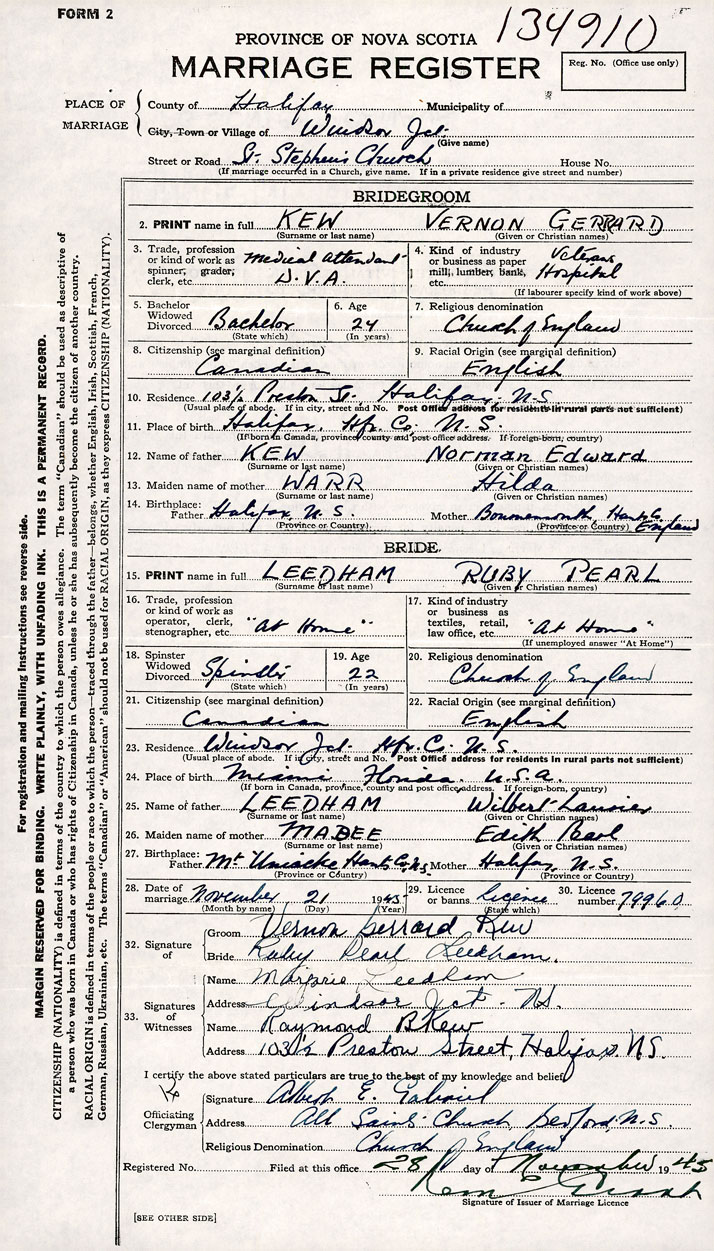 FORM 2
134910
PROVINCE OF NOVA SCOTIA
MARRIAGE REGISTER
Reg. No. (Office use only)
PLACE OF MARRIAGE
County of Halifax Municipality of
City, Town or Village of Windsor Jct.
(Give name)
Street or Road St. Stephen's Church House No.
(If marriage occurred in a Church, give name. If in a private residence give street and number)
BRIDEGROOM
2. PRINT name in full KEW VERNON GERRARD
(Surname or last name) (Given or Christian names)
3. Trade, profession or kind of work as spinner, grader, clerk, etc. Medical Attendant D.V.A.
4. Kind of industry or business as paper mill, lumber, bank, etc. Veterans Hospital
(If labourer specify kind of work above)
5. Bachelor Widowed Divorced Bachelor
(State which)
6. Age 24
(In years)
7. Religious denomination Church of England
8. Citizenship (see marginal definition) Canadian
9. Racial Origin (see marginal definition) English
10. Residence 103½ Preston St. Halifax, N.S.
(Usual place of abode. If in city, street and No. Post Office address for residents in rural parts not sufficient)
11. Place of birth Halifax, Hfx. Co. N.S.
(If born in Canada, province county and post office address. If foreign-born, country)
12. Name of father KEW Norman Edward
(Surname or last name) (Given or Christian names)
13. Maiden name of mother WARR Hilda
(Surname or last name) (Given or Christian names)
14. Birthplace: Father Halifax, N.S. Mother Bournemouth, Hants Co. England
(Province or Country) (Province or Country)
BRIDE
15. PRINT name in full LEEDHAM RUBY PEARL
(Surname or last name) (Given or Christian names)
16. Trade, profession or kind of work as operator, clerk, stenographer, etc. "At Home"
17. Kind of industry or business as textiles, retail, law office, etc. "At Home"
(If unemployed answer "At Home")
18. Spinster Widowed Divorced Spinster
(State which)
19. Age 22
(In years)
20. Religious denomination Church of England
21. Citizenship (see marginal definition) Canadian
22. Racial Origin (see marginal definition) English
23. Residence Windsor Jct. Hfx. Co. N.S.
(Usual place of abode. If in city, street and No. Post Office address for residents in rural parts not sufficient)
24. Place of birth Miami Florida. U.S.A.
(If born in Canada, province, county and post office address. If foreign-born, country)
25. Name of father LEEDHAM Wilbert
(Surname or last name) (Given or Christian names)
26. Maiden name of mother MABEE Edith Pearl
(Surname or last name) (Given or Christian names)
27. Birthplace: Father Mt Uniacke Hants Co. N.S. Mother Halifax, N.S.
(Province or Country) (Province or Country)
28. Date of marriage November 21 1945
(Month by name) (Day) (Year)
29. Licence or banns licence
(State which)
30. Licence number 79960
32. Signature of
Groom Vernon Gerrard Kew
Bride Ruby Pearl Leedham.
33. Signatures of Witnesses
Name Marjorie Leedham
Address Windsor Jct. N.S.
Name Raymond B Kew
Address 103½ Preston Street, Halifax. N.S.
I certify the above stated particulars are true to the best of my knowledge and belief
Officiating Clergyman
Signature Albert E. Gabriel
Address All Saints' Church Bedford, N.S.
Religious Denomination Church of England
Registered No. Filed at this office 28 day of November 1945
Signature of Issuer of Marriage Licence
[SEE OTHER SIDE]
For registration and mailing instructions see reverse side.
MARGIN RESERVED FOR BINDING. WRITE PLAINLY, WITH UNFADING INK. THIS IS A PERMANENT RECORD.
CITIZENSHIP (NATIONALITY) is defined in terms of the country to which the person owes allegiance. The term "Canadian" should be used as descriptive of
a person who was born in Canada or who has rights of Citizenship in Canada, unless he or she has subsequently become the citizen of another country.
RACIAL ORIGIN is defined in terms of the people or race to which the person—traced through the father—belongs, whether English, Irish, Scottish, French,
German, Russian, Ukrainian, etc. The terms "Canadian" or "American" should not be used for RACIAL ORIGIN, as they express CITIZENSHIP (NATIONALITY).